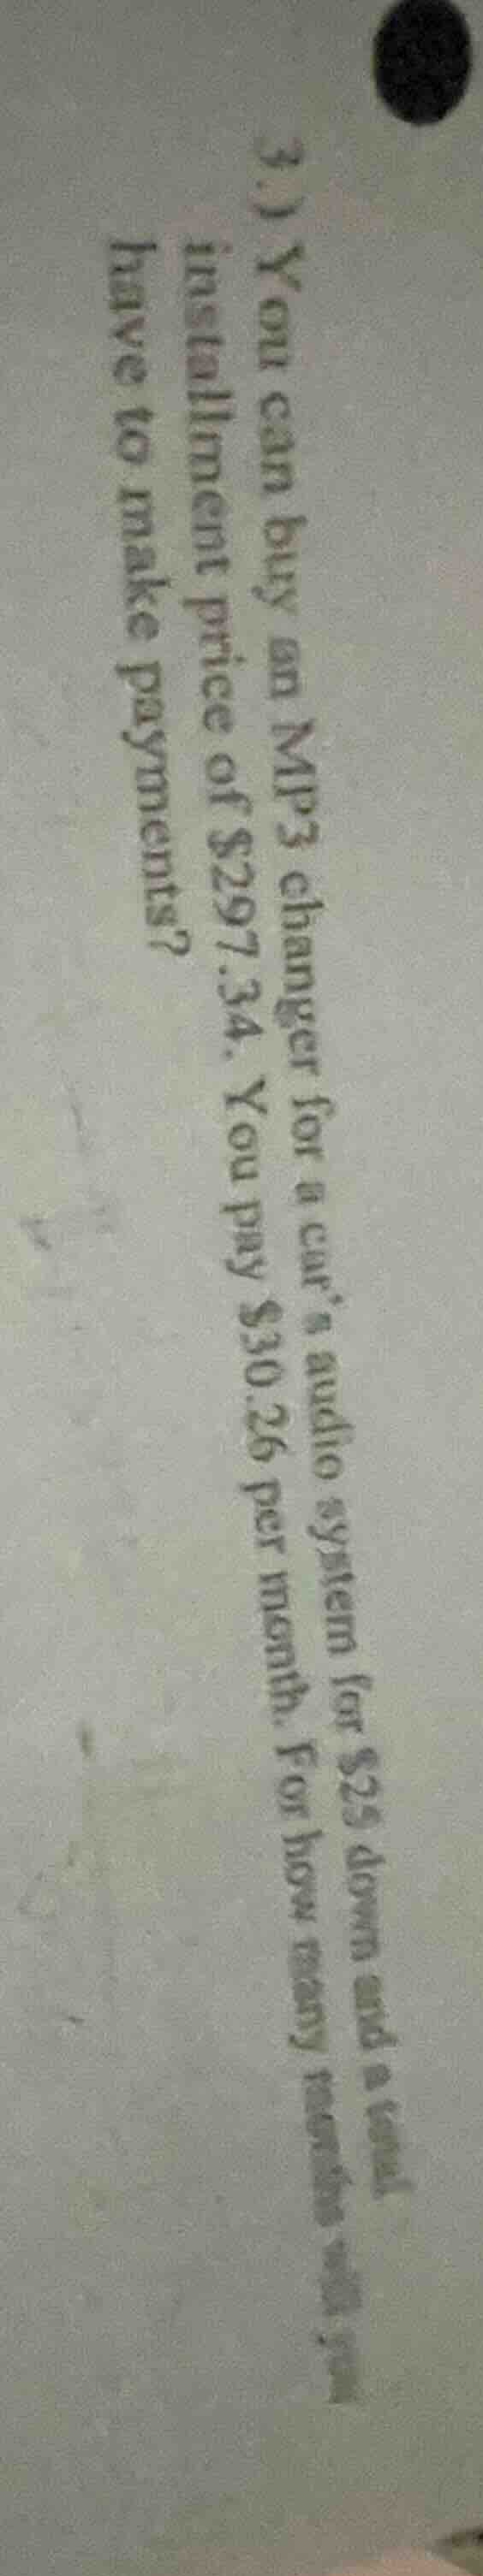 3.) You can buy an MP3 changer for a car's audio system for $25 down and a total
installment price of $297.34. You pay $30.26 per month. For how many months will you
have to make payments?